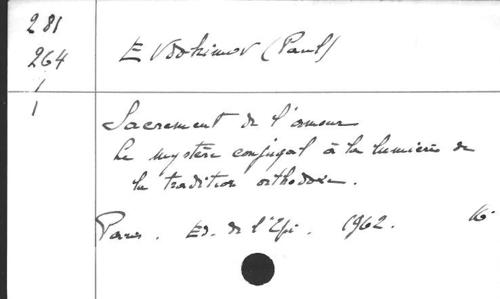 281
264
/
1
Evdokimov (Paul)
Sacrement de l'amour
Le mystère conjugal à la lumière de
la tradition orthodoxe.
Paris. Ed. de l'Epi. 1962. 16°